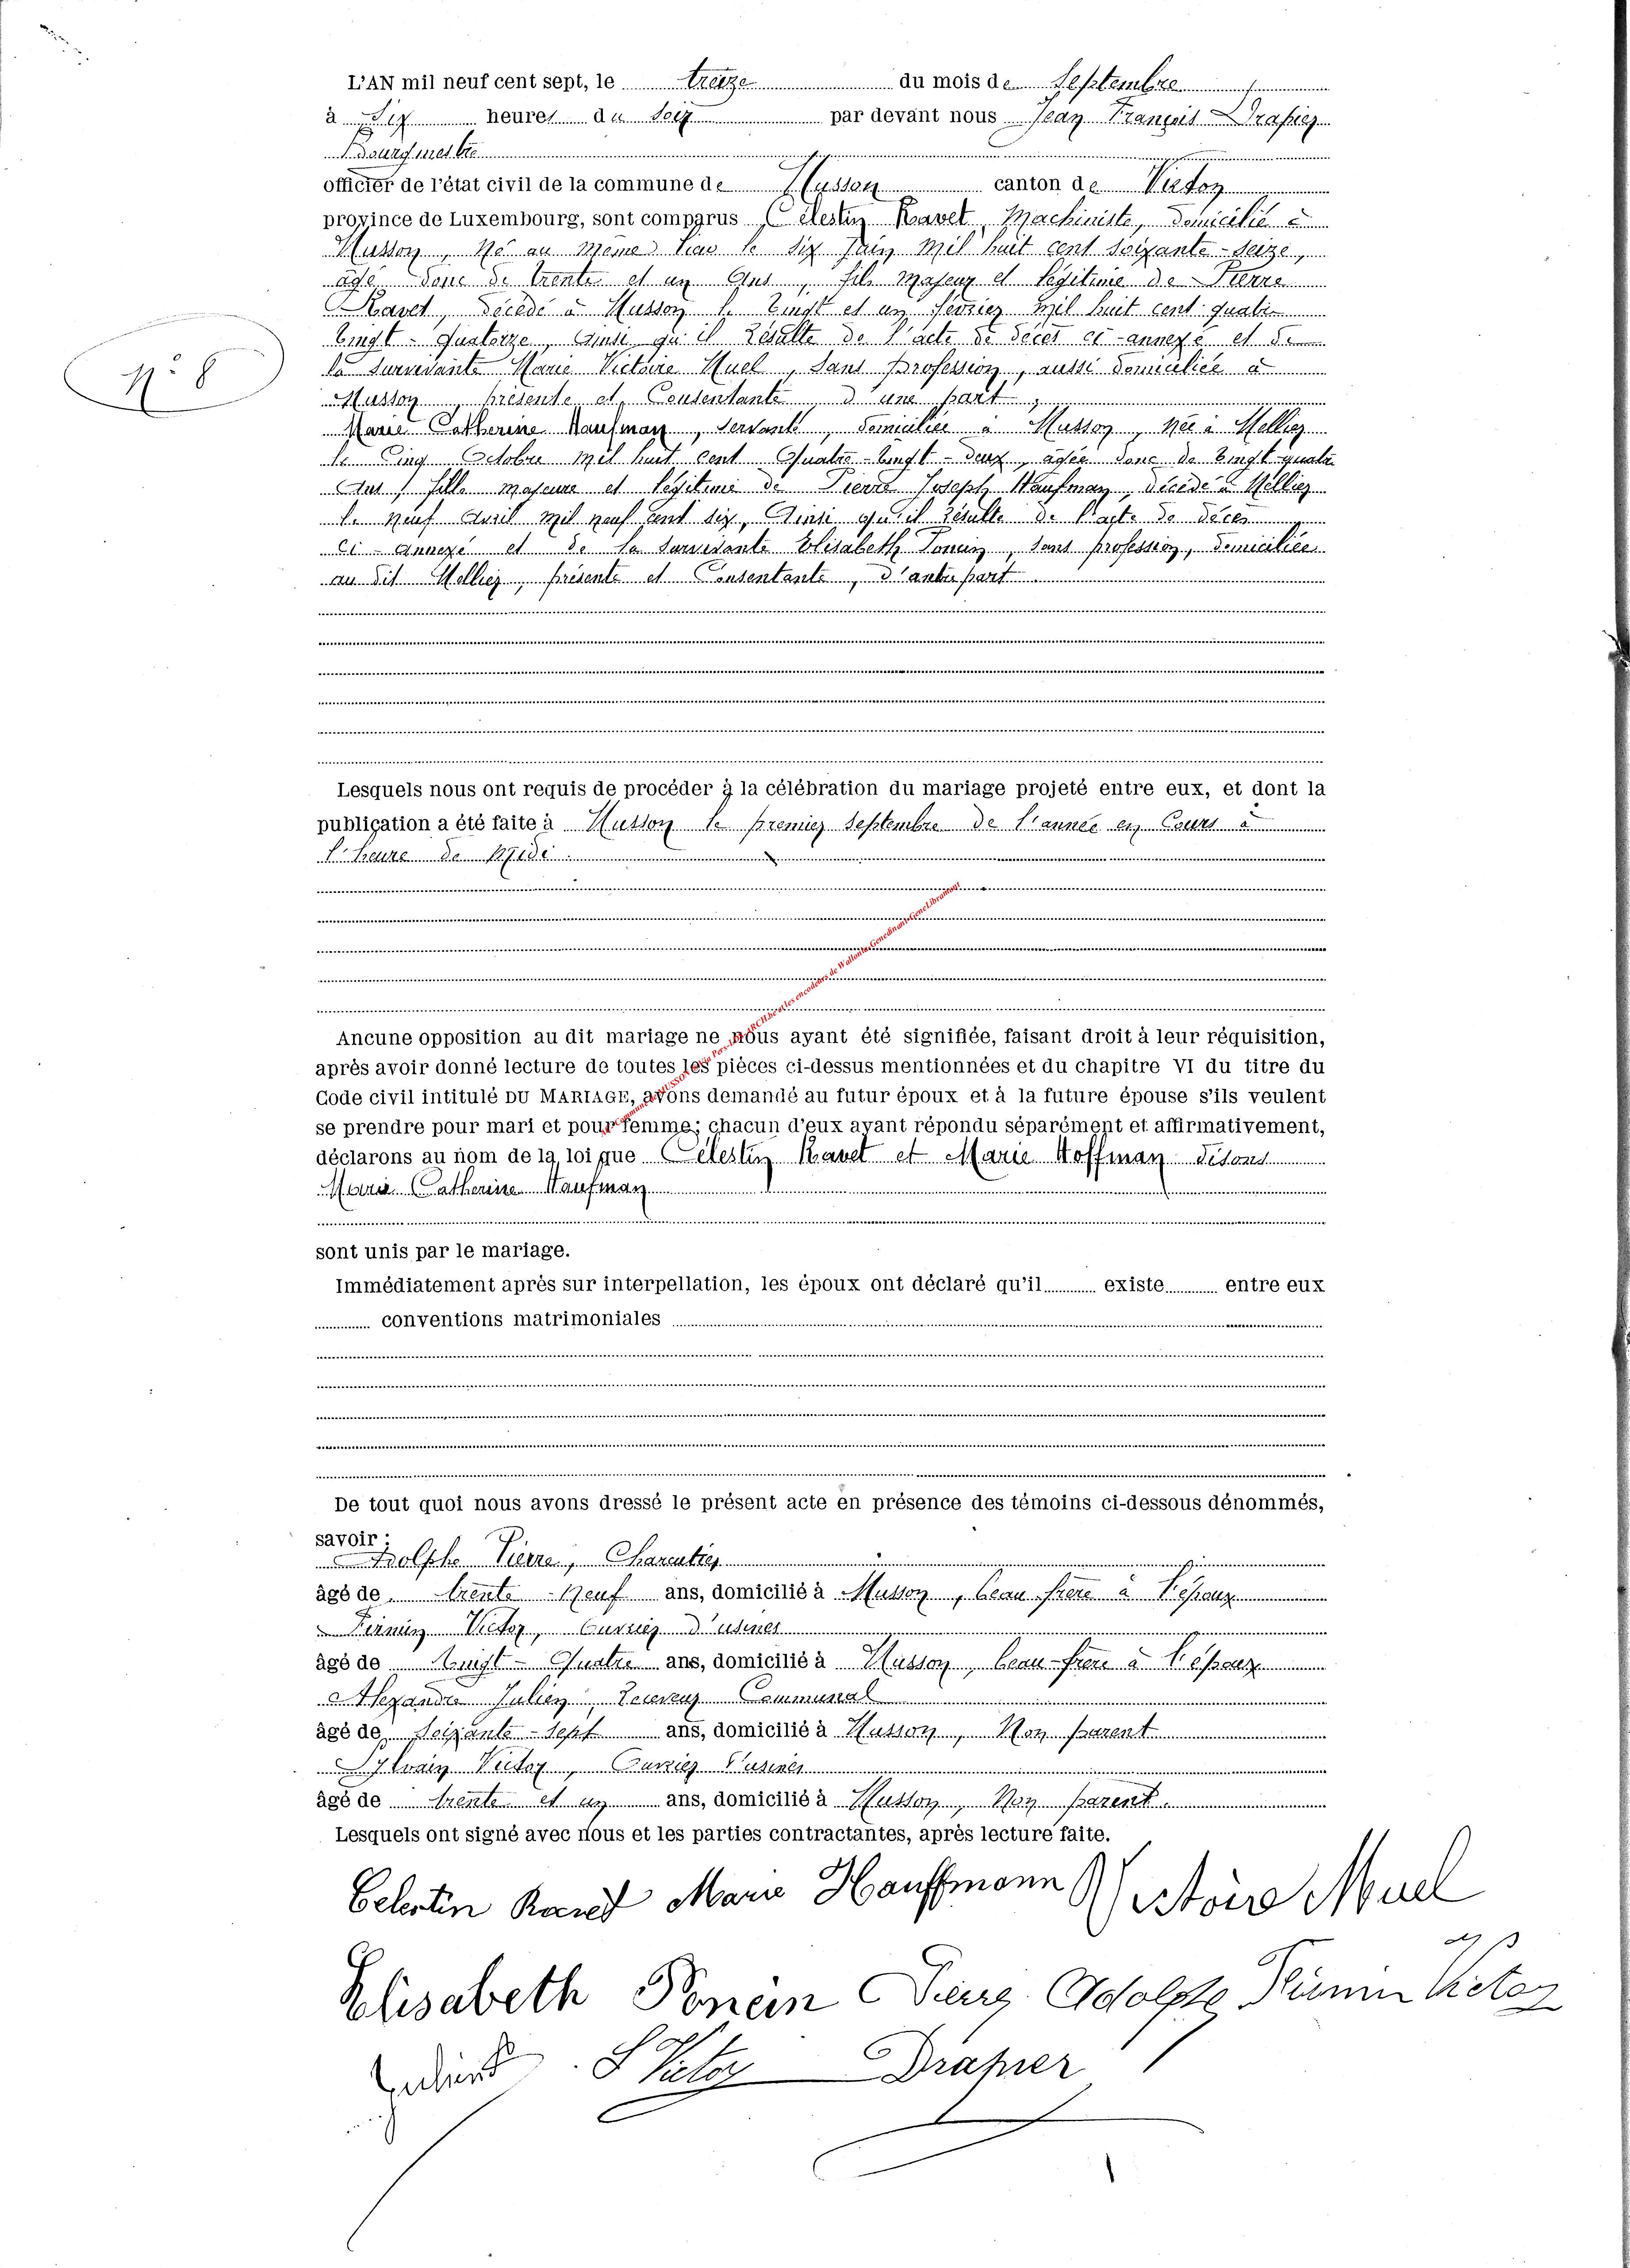 L'AN mil neuf cent sept, le treize du mois de Septembre
à Six heures du Soir par devant nous Jean François Drapier
Bourgmestre
officier de l'état civil de la commune de Musson canton de Virton
province de Luxembourg, sont comparus Célestin Ravet, Machiniste, domicilié à
Musson, Né au Même lieu le dix Juin Mil huit cent soixante-seize,
âgé donc de trente et un Ans, fils Majeur et légitime de Pierre
Ravet, décédé à Musson le Vingt et un février Mil huit cent quatre
Vingt-Quatorze, Ainsi qu'il Résulte de l'acte de décès ci-annexé et de
la Survivante Marie Victoire Muel, Sans Profession, aussi domiciliée à
Musson, présente et Consentante, d'une part;
Marie Catherine Haufman, Servante, domiciliée à Musson, Née à Mellier
le Cinq Octobre Mil huit cent Quatre-Vingt-deux, âgée donc de Vingt quatre
Ans, fille majeure et légitime de Pierre Joseph Haufman, décédé à Mellier
le Neuf Avril Mil neuf cent six, Ainsi qu'il Résulte de l'acte de décès
Ci-Annexé et de la Survivante Elisabeth Ponein, sans profession, domiciliée
au dit Mellier, présente et Consentante, d'autre part.
N° 8
Lesquels nous ont requis de procéder à la célébration du mariage projeté entre eux, et dont la
publication a été faite à Musson le premier Septembre de l'année en Cours à
l'heure de Midi.
Aucune opposition au dit mariage ne nous ayant été signifiée, faisant droit à leur réquisition,
après avoir donné lecture de toutes les pièces ci-dessus mentionnées et du chapitre VI du titre du
Code civil intitulé DU MARIAGE, avons demandé au futur époux et à la future épouse s'ils veulent
se prendre pour mari et pour femme; chacun d'eux ayant répondu séparément et affirmativement,
déclarons au nom de la loi que Célestin Ravet et Marie Hoffman disons
Marie Catherine Haufman
sont unis par le mariage.
Immédiatement après sur interpellation, les époux ont déclaré qu'il existe entre eux
conventions matrimoniales
De tout quoi nous avons dressé le présent acte en présence des témoins ci-dessous dénommés,
savoir:
Adolphe Pierre, Charcutier
âgé de trente-Neuf ans, domicilié à Musson, beau frère à l'époux
Firmin Victor, Ouvrier d'usines
âgé de Vingt-Quatre ans, domicilié à Musson, beau-frère à l'époux
Alexandre Julien, Receveur Communal
âgé de Soixante-Sept ans, domicilié à Musson, Non parent
Sylvain Victor, Ouvrier d'usines
âgé de trente et un ans, domicilié à Musson, Non parent.
Lesquels ont signé avec nous et les parties contractantes, après lecture faite.
Celestin Ravet Marie Hauffmann Victoire Muel
Elisabeth Ponein Pierre Adolphe Firmin Victor
Julien S Victor Drapier